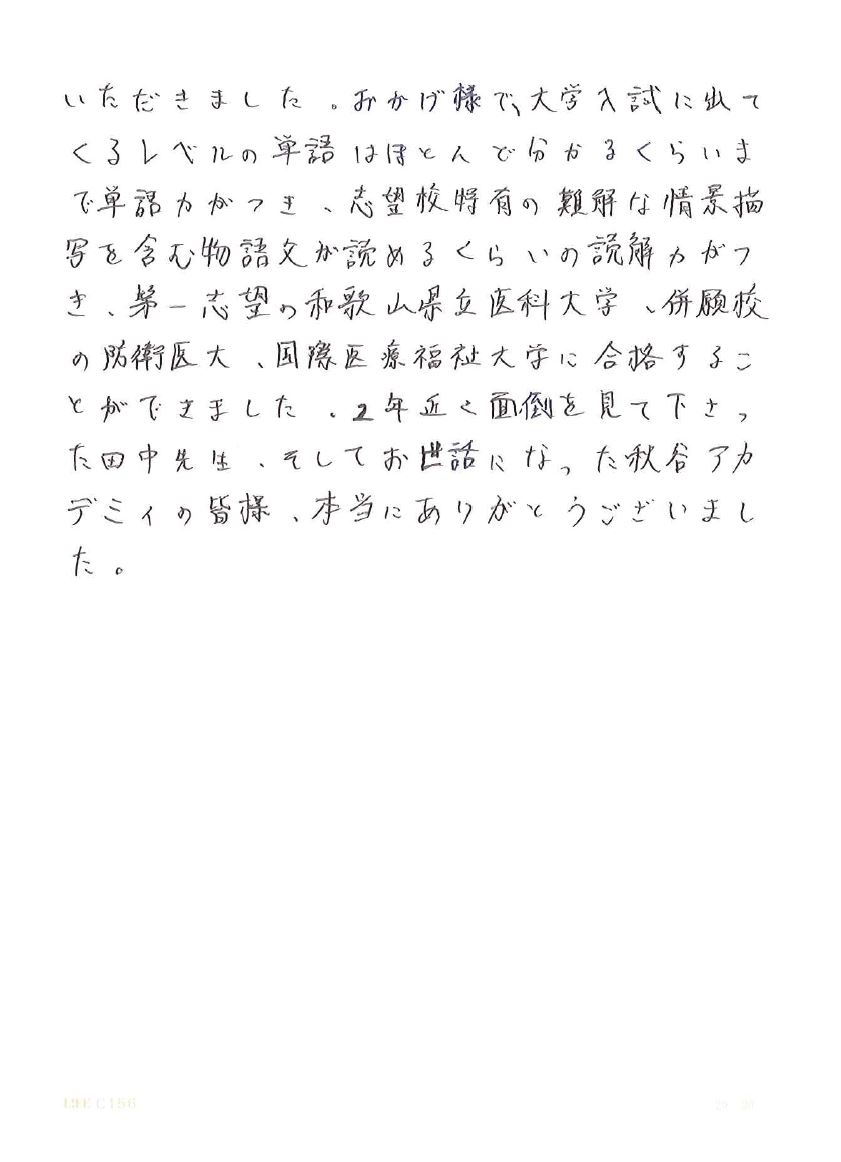 いただきました。おかげ様で、大学入試に出て
くるレベルの単語はほとんど分かるくらいま
で単語力がつき、志望校特有の難解な情景描
写を含む物語文が読めるくらいの読解力がつ
き、第一志望の和歌山県立医科大学、併願校
の防衛医大、国際医療福祉大学に合格するこ
とができました。2年近く面倒を見て下さっ
た田中先生、そしてお世話になった秋谷アカ
デミィの皆様、本当にありがとうございまし
た。
LIFE C156
20 20